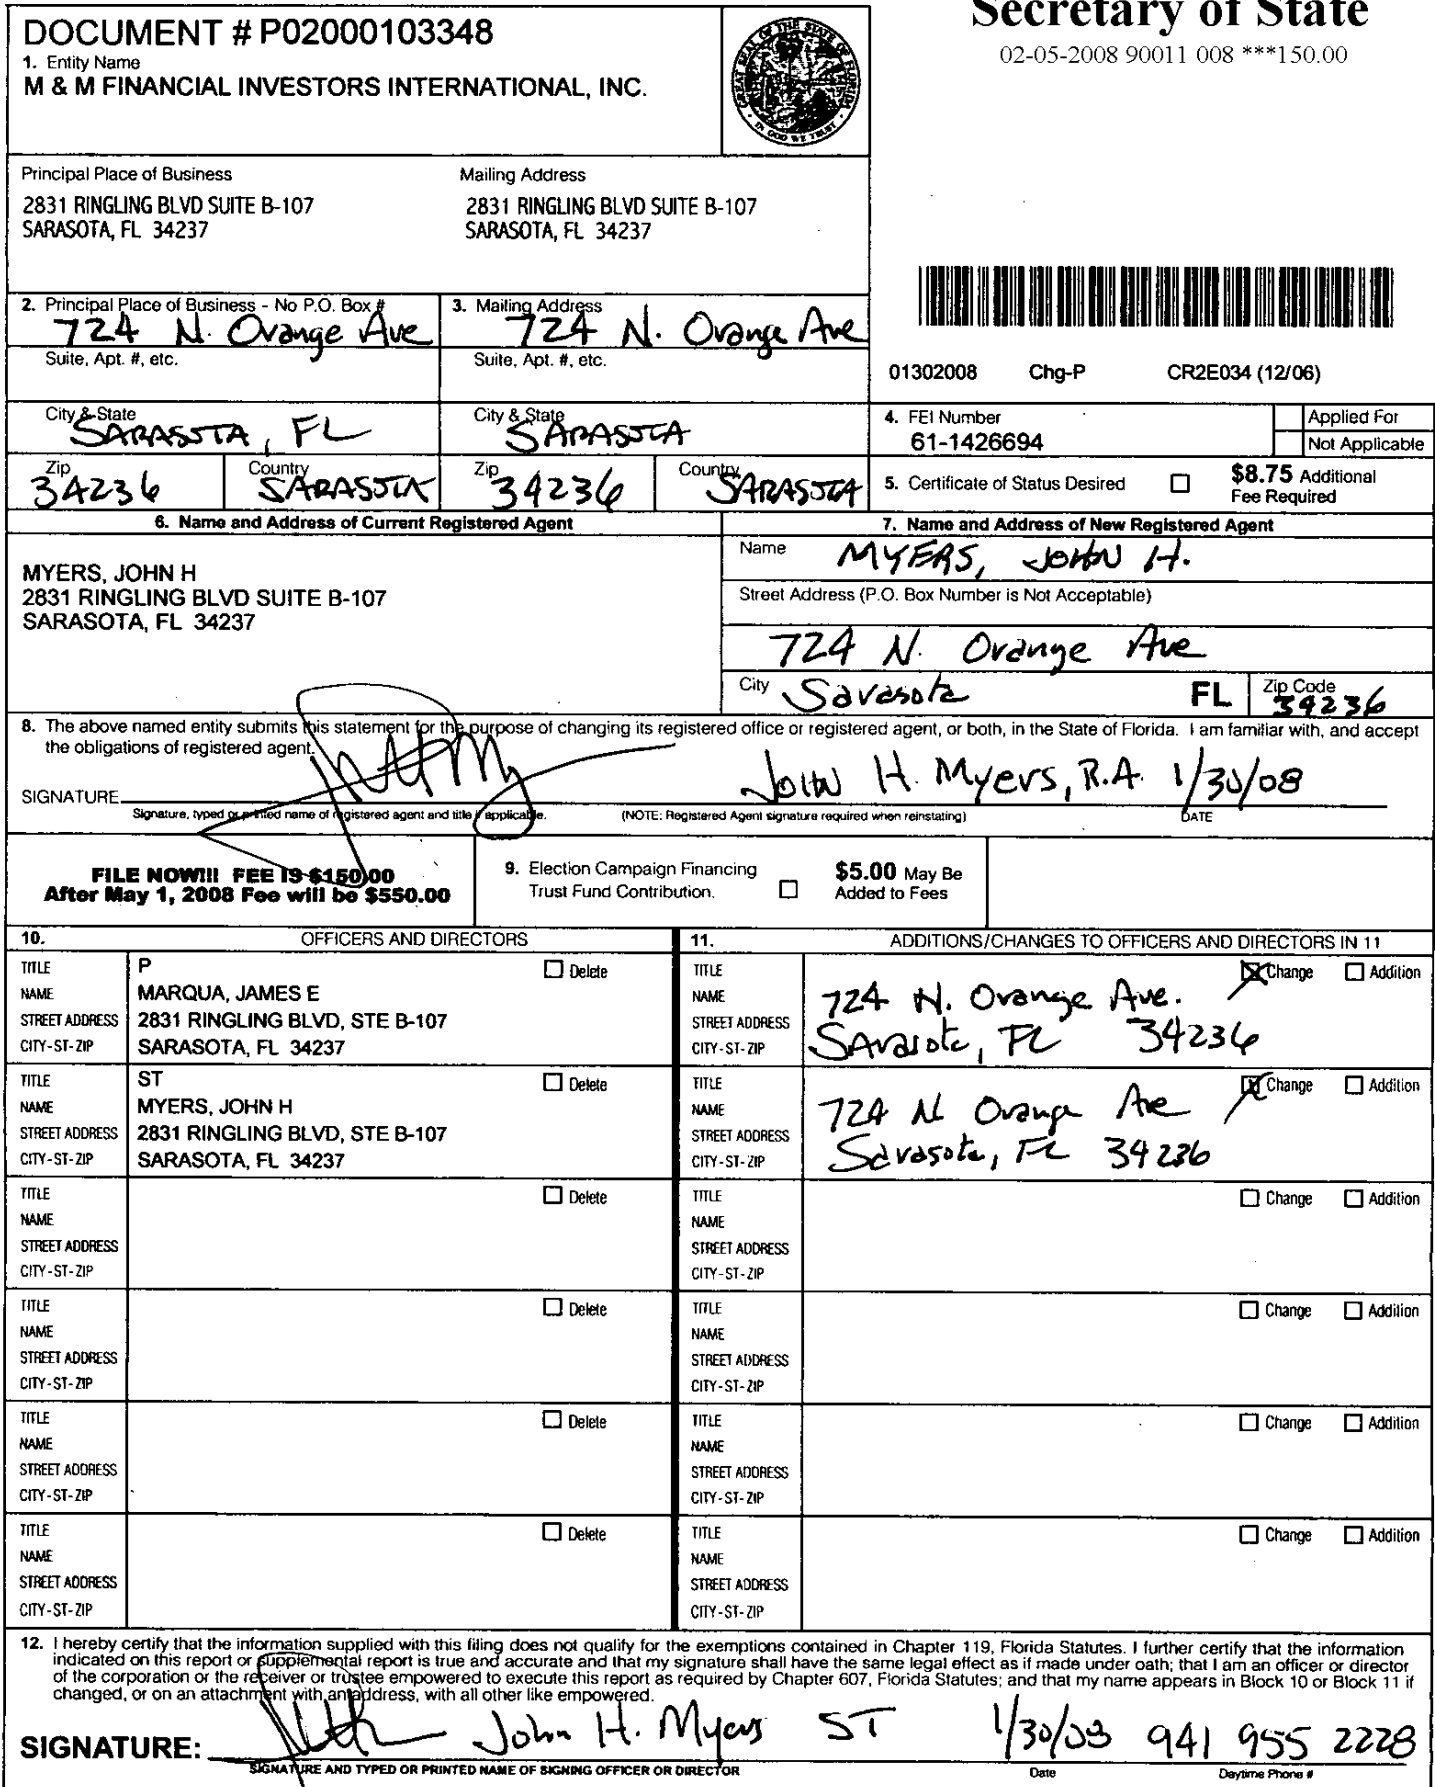 Secretary of State
02-05-2008 90011 008 ***150.00
DOCUMENT # P02000103348
1. Entity Name
M & M FINANCIAL INVESTORS INTERNATIONAL, INC.
GREAT SEAL OF THE STATE OF FLORIDA
IN GOD WE TRUST
Principal Place of Business
2831 RINGLING BLVD SUITE B-107
SARASOTA, FL 34237
Mailing Address
2831 RINGLING BLVD SUITE B-107
SARASOTA, FL 34237
2. Principal Place of Business - No P.O. Box #
724 N. Orange Ave
3. Mailing Address
724 N. Orange Ave
Suite, Apt. #, etc.
Suite, Apt. #, etc.
01302008 Chg-P CR2E034 (12/06)
City & State
SARASOTA, FL
City & State
SARASOTA
Zip
34236
Country
SARASOTA
Zip
34236
Country
SARASOTA
4. FEI Number
61-1426694
Applied For
Not Applicable
5. Certificate of Status Desired
$8.75 Additional
Fee Required
6. Name and Address of Current Registered Agent
MYERS, JOHN H
2831 RINGLING BLVD SUITE B-107
SARASOTA, FL 34237
7. Name and Address of New Registered Agent
Name MYERS, JOHN H.
Street Address (P.O. Box Number is Not Acceptable)
724 N. Orange Ave
City Sarasota FL Zip Code 34236
8. The above named entity submits this statement for the purpose of changing its registered office or registered agent, or both, in the State of Florida. I am familiar with, and accept
the obligations of registered agent.
SIGNATURE John H. Myers, R.A. 1/30/08
Signature, typed or printed name of registered agent and title if applicable. (NOTE: Registered Agent signature required when reinstating) DATE
FILE NOW!!! FEE IS $150.00
After May 1, 2008 Fee will be $550.00
9. Election Campaign Financing
Trust Fund Contribution.
$5.00 May Be
Added to Fees
10. OFFICERS AND DIRECTORS
11. ADDITIONS/CHANGES TO OFFICERS AND DIRECTORS IN 11
TITLE P Delete
NAME MARQUA, JAMES E
STREET ADDRESS 2831 RINGLING BLVD, STE B-107
CITY-ST-ZIP SARASOTA, FL 34237
TITLE Change Addition
NAME 724 N. Orange Ave.
STREET ADDRESS
CITY-ST-ZIP Sarasota, FL 34236
TITLE ST Delete
NAME MYERS, JOHN H
STREET ADDRESS 2831 RINGLING BLVD, STE B-107
CITY-ST-ZIP SARASOTA, FL 34237
TITLE Change Addition
NAME 724 N Orange Ave
STREET ADDRESS
CITY-ST-ZIP Sarasota, FL 34236
TITLE Delete
NAME
STREET ADDRESS
CITY-ST-ZIP
TITLE Change Addition
NAME
STREET ADDRESS
CITY-ST-ZIP
TITLE Delete
NAME
STREET ADDRESS
CITY-ST-ZIP
TITLE Change Addition
NAME
STREET ADDRESS
CITY-ST-ZIP
TITLE Delete
NAME
STREET ADDRESS
CITY-ST-ZIP
TITLE Change Addition
NAME
STREET ADDRESS
CITY-ST-ZIP
TITLE Delete
NAME
STREET ADDRESS
CITY-ST-ZIP
TITLE Change Addition
NAME
STREET ADDRESS
CITY-ST-ZIP
12. I hereby certify that the information supplied with this filing does not qualify for the exemptions contained in Chapter 119, Florida Statutes. I further certify that the information
indicated on this report or supplemental report is true and accurate and that my signature shall have the same legal effect as if made under oath; that I am an officer or director
of the corporation or the receiver or trustee empowered to execute this report as required by Chapter 607, Florida Statutes; and that my name appears in Block 10 or Block 11 if
changed, or on an attachment with an address, with all other like empowered.
SIGNATURE: John H. Myers ST 1/30/08 941 955 2228
SIGNATURE AND TYPED OR PRINTED NAME OF SIGNING OFFICER OR DIRECTOR Date Daytime Phone #